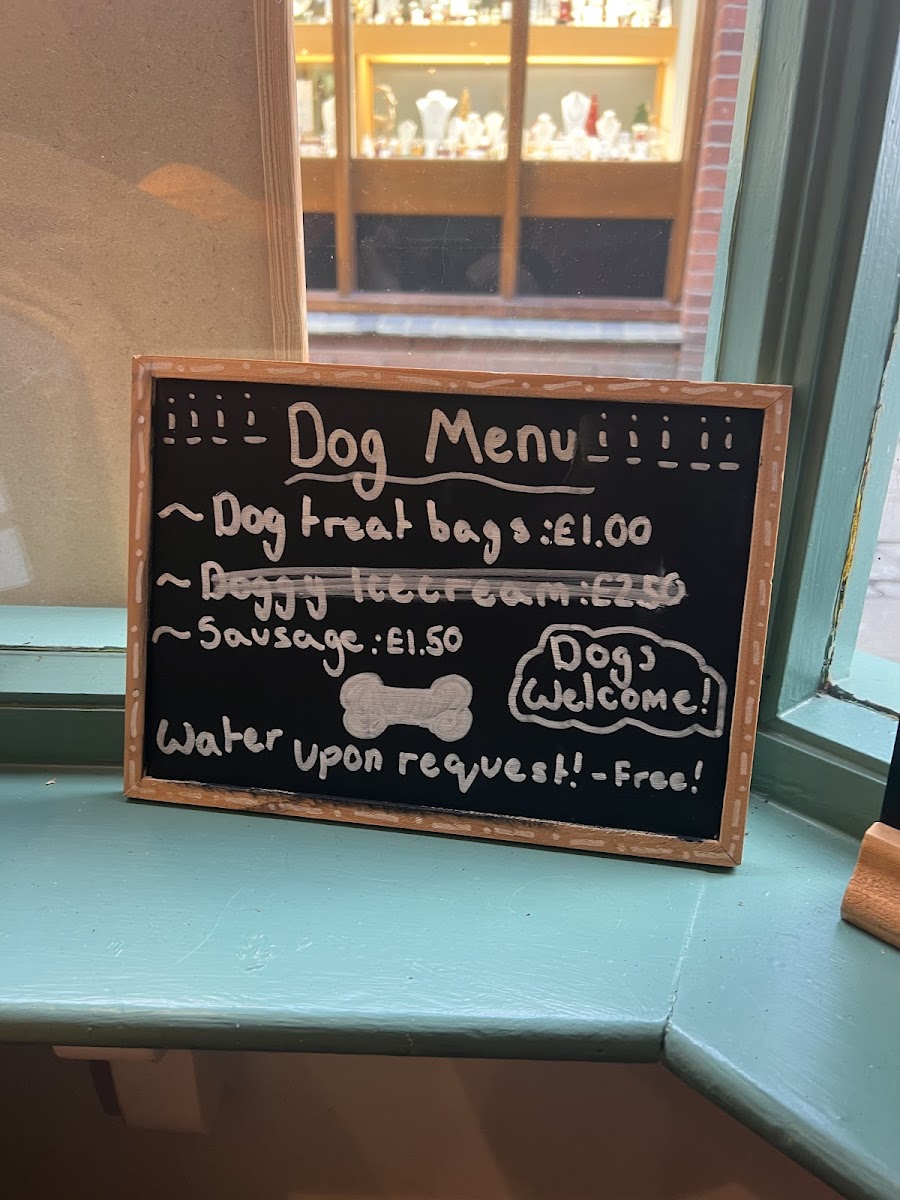 Dog Menu
~ Dog treat bags :£1.00
~ Doggy Icecream :£2.50
~ Sausage :£1.50
Dogs
Welcome!
Water upon request! - Free!